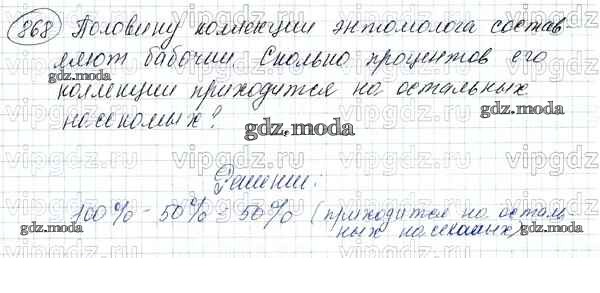 868 Половину коллекции энтомолога состав-
ляют бабочки. Сколько процентов его
gdz.moda
коллекции приходится на остальных
gdz.moda
насекомых?
gdz.moda
Решение:
100% - 50% = 50% (приходится на осталь-
gdz.moda
ных насекомых)
gdz.moda